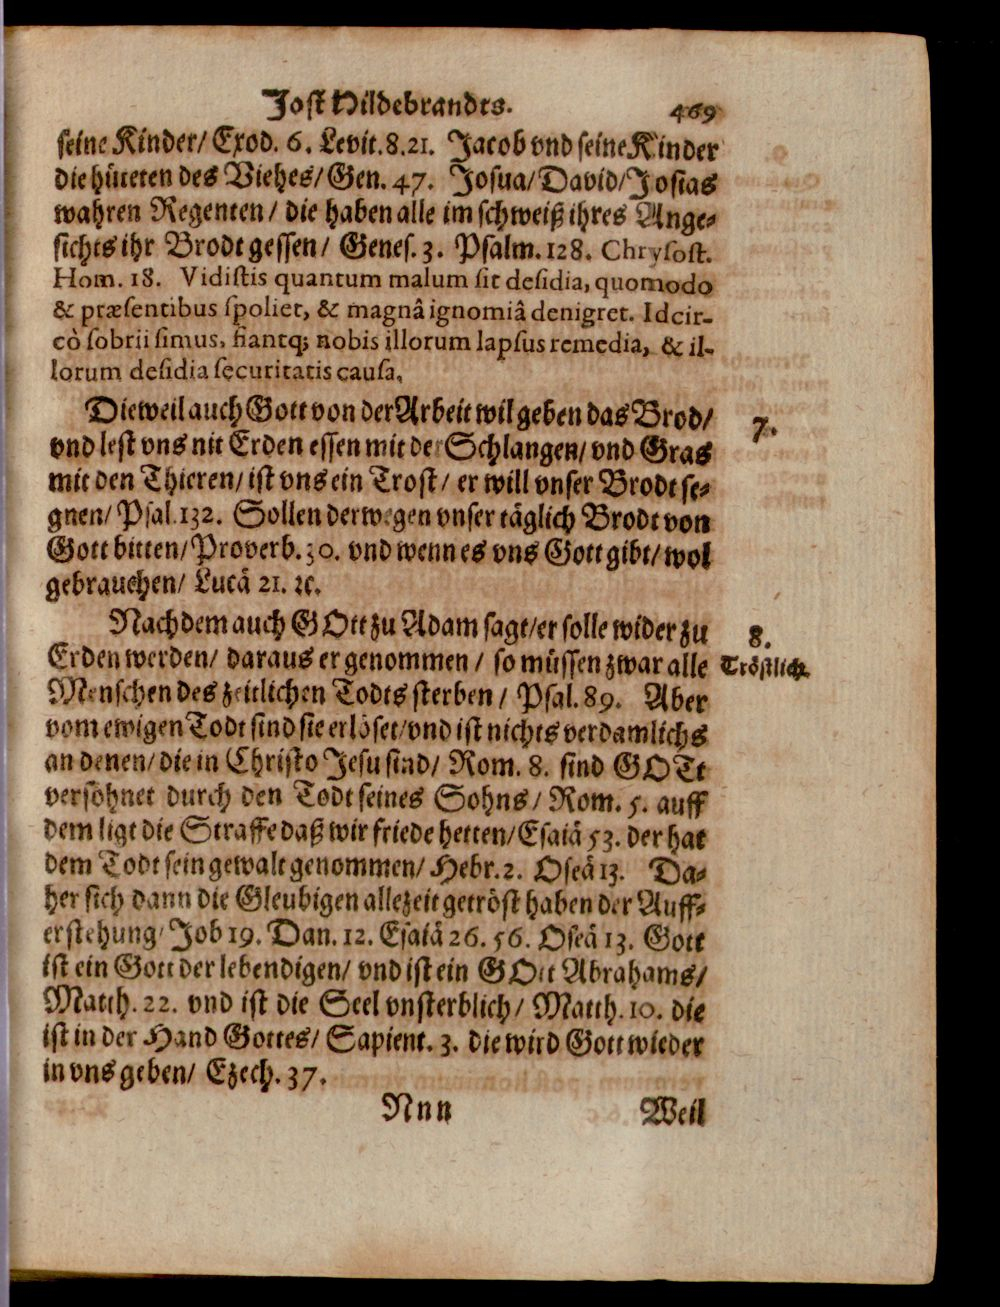 Jost Hildebrandts. 469
seine Kinder/ Exod. 6. Levit. 8. 21. Jacob vnd seine Kinder
die hüteten des Viehes/ Gen. 47. Josua/ David/ Josias
wahren Regenten/ die haben alle im schweiß ihres Ange-
sichts ihr Brodt gessen/ Genes. 3. Psalm. 128. Chrysost.
Hom. 18. Vidistis quantum malum sit desidia, quomodo
& præsentibus spoliet, & magnâ ignomiâ denigret. Idcir-
cò sobrii simus, fiantq; nobis illorum lapsus remedia, & il-
lorum desidia securitatis causa.
Dieweil auch Gott von der Arbeit wil geben das Brod/
7.
vnd lest vns nit Erden essen mit der Schlangen/ vnd Gras
mit den Thieren/ ist vns ein Trost/ er will vnser Brodt se-
gnen/ Psal. 132. Sollen derwegen vnser täglich Brodt von
Gott bitten/ Proverb. 30. vnd wenn es vns Gott gibt/ wol
gebrauchen/ Lucä 21. ꝛc.
Nachdem auch GOtt zu Adam sagt/ er solle wider zu
8.
Erden werden/ daraus er genommen/ so müssen zwar alle
Tröstlich.
Menschen des zeitlichen Todts sterben/ Psal. 89. Aber
vom ewigen Todt sind sie erlöset/ vnd ist nichts verdamlichs
an denen/ die in Christo Jesu sind/ Rom. 8. sind GOTt
versöhnet durch den Todt seines Sohns/ Rom. 5. auff
dem ligt die Straffe daß wir friede hetten/ Esaiä 53. der hat
dem Todt sein gewalt genommen/ Hebr. 2. Oseä 13. Da-
her sich dann die Gleubigen allezeit getröst haben der Auff-
erstehung/ Job 19. Dan. 12. Esaiä 26. 56. Oseä 13. Gott
ist ein Gott der lebendigen/ vnd ist ein GOtt Abrahams/
Matth. 22. vnd ist die Seel vnsterblich/ Matth. 10. die
ist in der Hand Gottes/ Sapient. 3. die wird Gott wieder
in vns geben/ Ezech. 37.
Nnn Weil